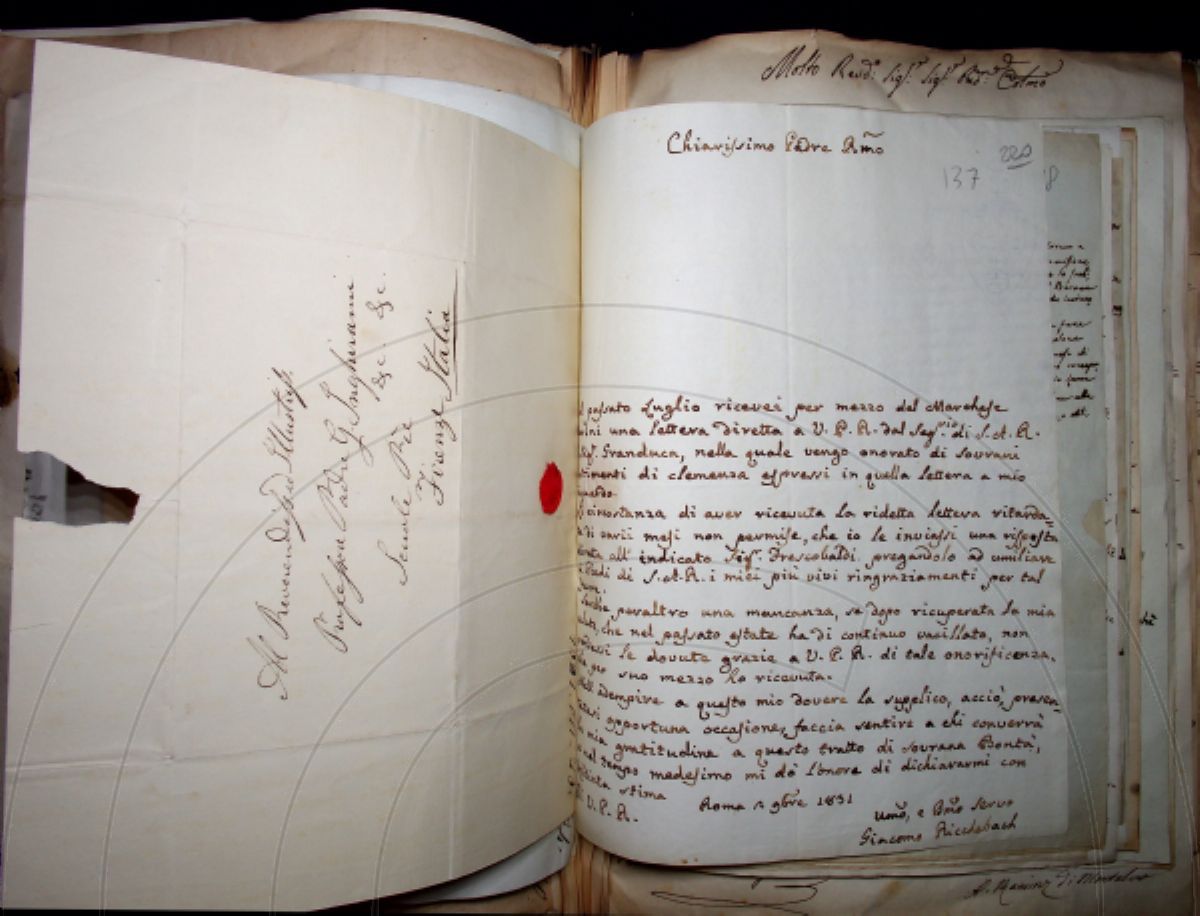 Al Reverendiss. ed Illustriss.
Professore Padre G Inghirami
&c. &c. &c.
Scuole Pie
Firenze Italia
Molto Revd. Sigr. Sigr.
Chiarissimo Padre Rmo
220
137
8
passato Luglio ricevei per mezzo del Marchese
una lettera diretta a V. P. R. dal Segrio di S. A. R.
Sigr. Granduca, nella quale vengo onorato di Sovrani
timenti di clemenza espressi in quella lettera a mio
circostanza di aver ricevuta la ridetta lettera ritarda-
di varii mesi non permise, che io le inviassi una risposta
all' indicato Sigr. Frescobaldi pregandolo ad umiliare
Piedi di S. A. R. i miei più vivi ringraziamenti per tal
peraltro una mancanza, se dopo ricuperata la mia
che nel passato estate ha di continuo vacillato, non
le dovute grazie a V. P. R. di tale onorificenza,
per suo mezzo ho ricevuta.
Nell' adempire a questo mio dovere la supplico, acciò, presen-
opportuna occasione, faccia sentire a chi converrà
la mia gratitudine a questo tratto di Sovrana Bontà,
e nel tempo medesimo mi do l'onore di dichiararmi con
stima
di V. P. R.
Roma 9bre 1831
Umo, e Dmo Servo
Giacomo Ricchebach
di Montalvo